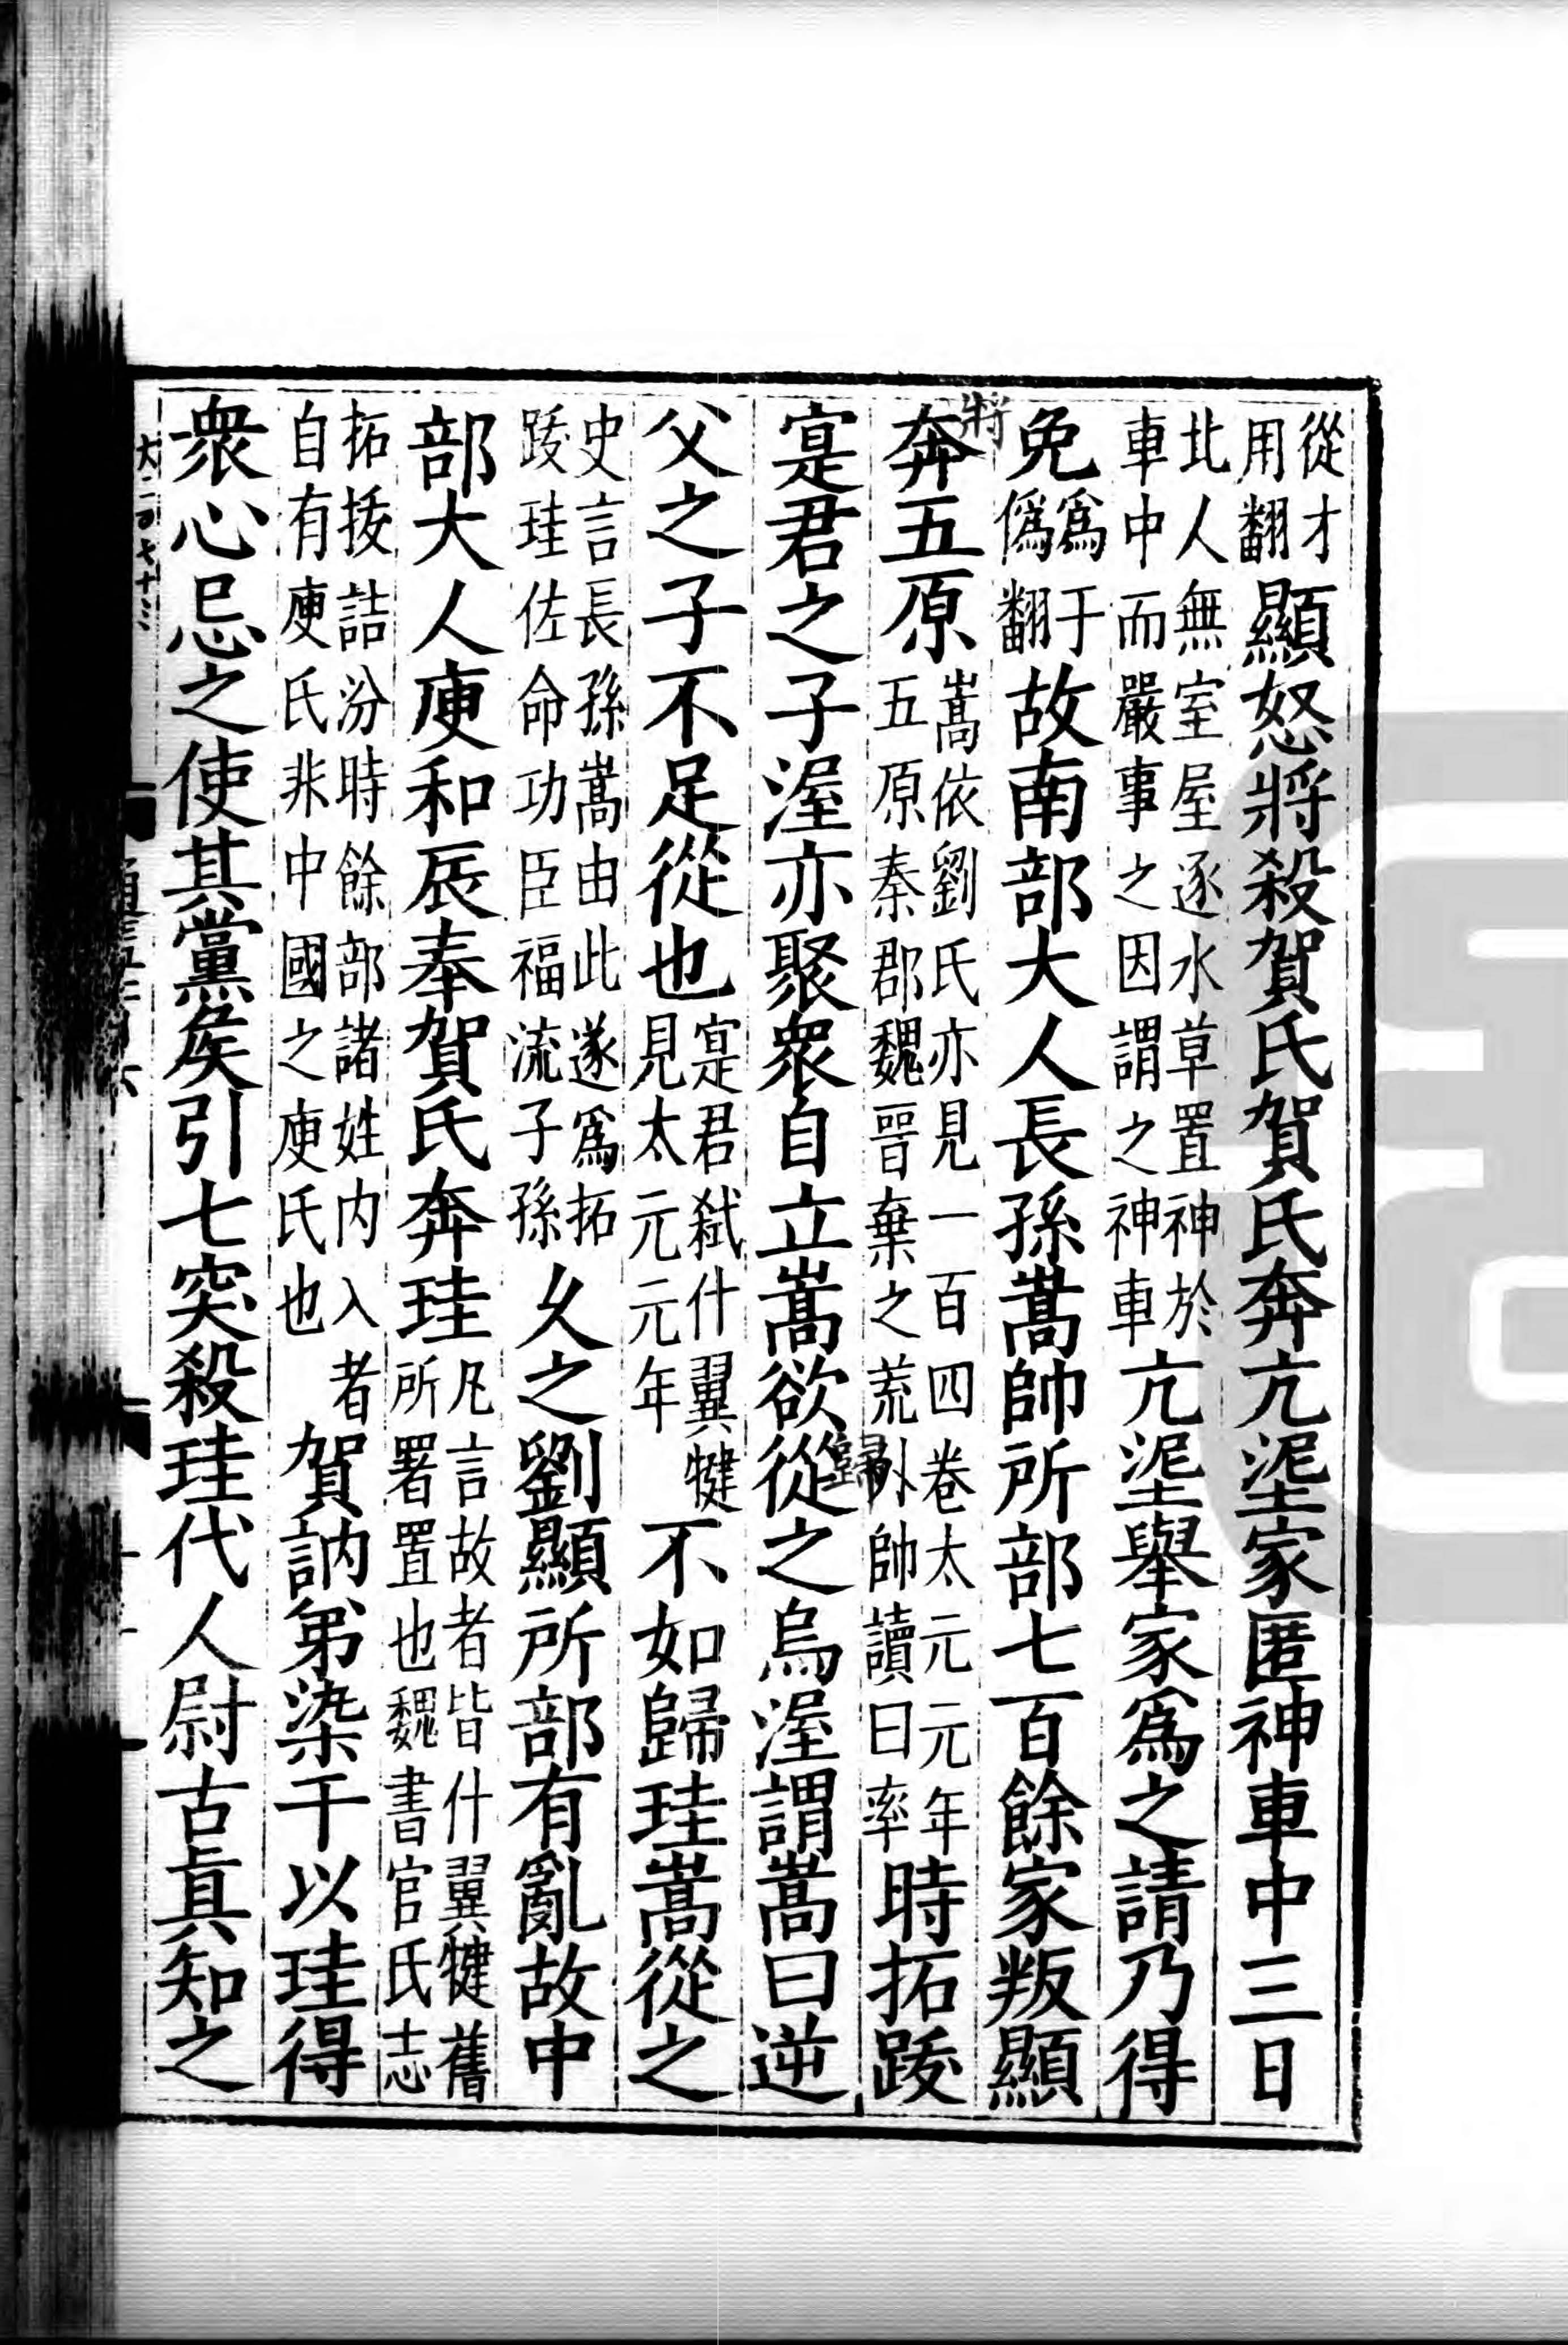 從才用翻顯怒將殺賀氏賀氏奔亢埿家匿神車中三日
北人無室屋逐水草置神於車中而嚴事之因謂之神車亢埿舉家爲之請乃得
免爲于僞翻故南部大人長孫嵩帥所部七百餘家叛顯
將
奔五原嵩依劉氏亦見一百四卷太元元年五原秦郡魏晉棄之荒外帥讀曰率時拓跋
歸
寔君之子渥亦聚衆自立嵩欲從之烏渥謂嵩曰逆
父之子不足從也寔君弑什翼犍見太元元年不如歸珪嵩從之
史言長孫嵩由此遂爲拓跋珪佐命功臣福流子孫久之劉顯所部有亂故中
部大人庾和辰奉賀氏奔珪凡言故者皆什翼犍舊所署置也魏書官氏志
拓拔詰汾時餘部諸姓内入者自有庾氏非中國之庾氏也賀訥弟染干以珪得
衆心忌之使其黨矦引七突殺珪代人尉古真知之